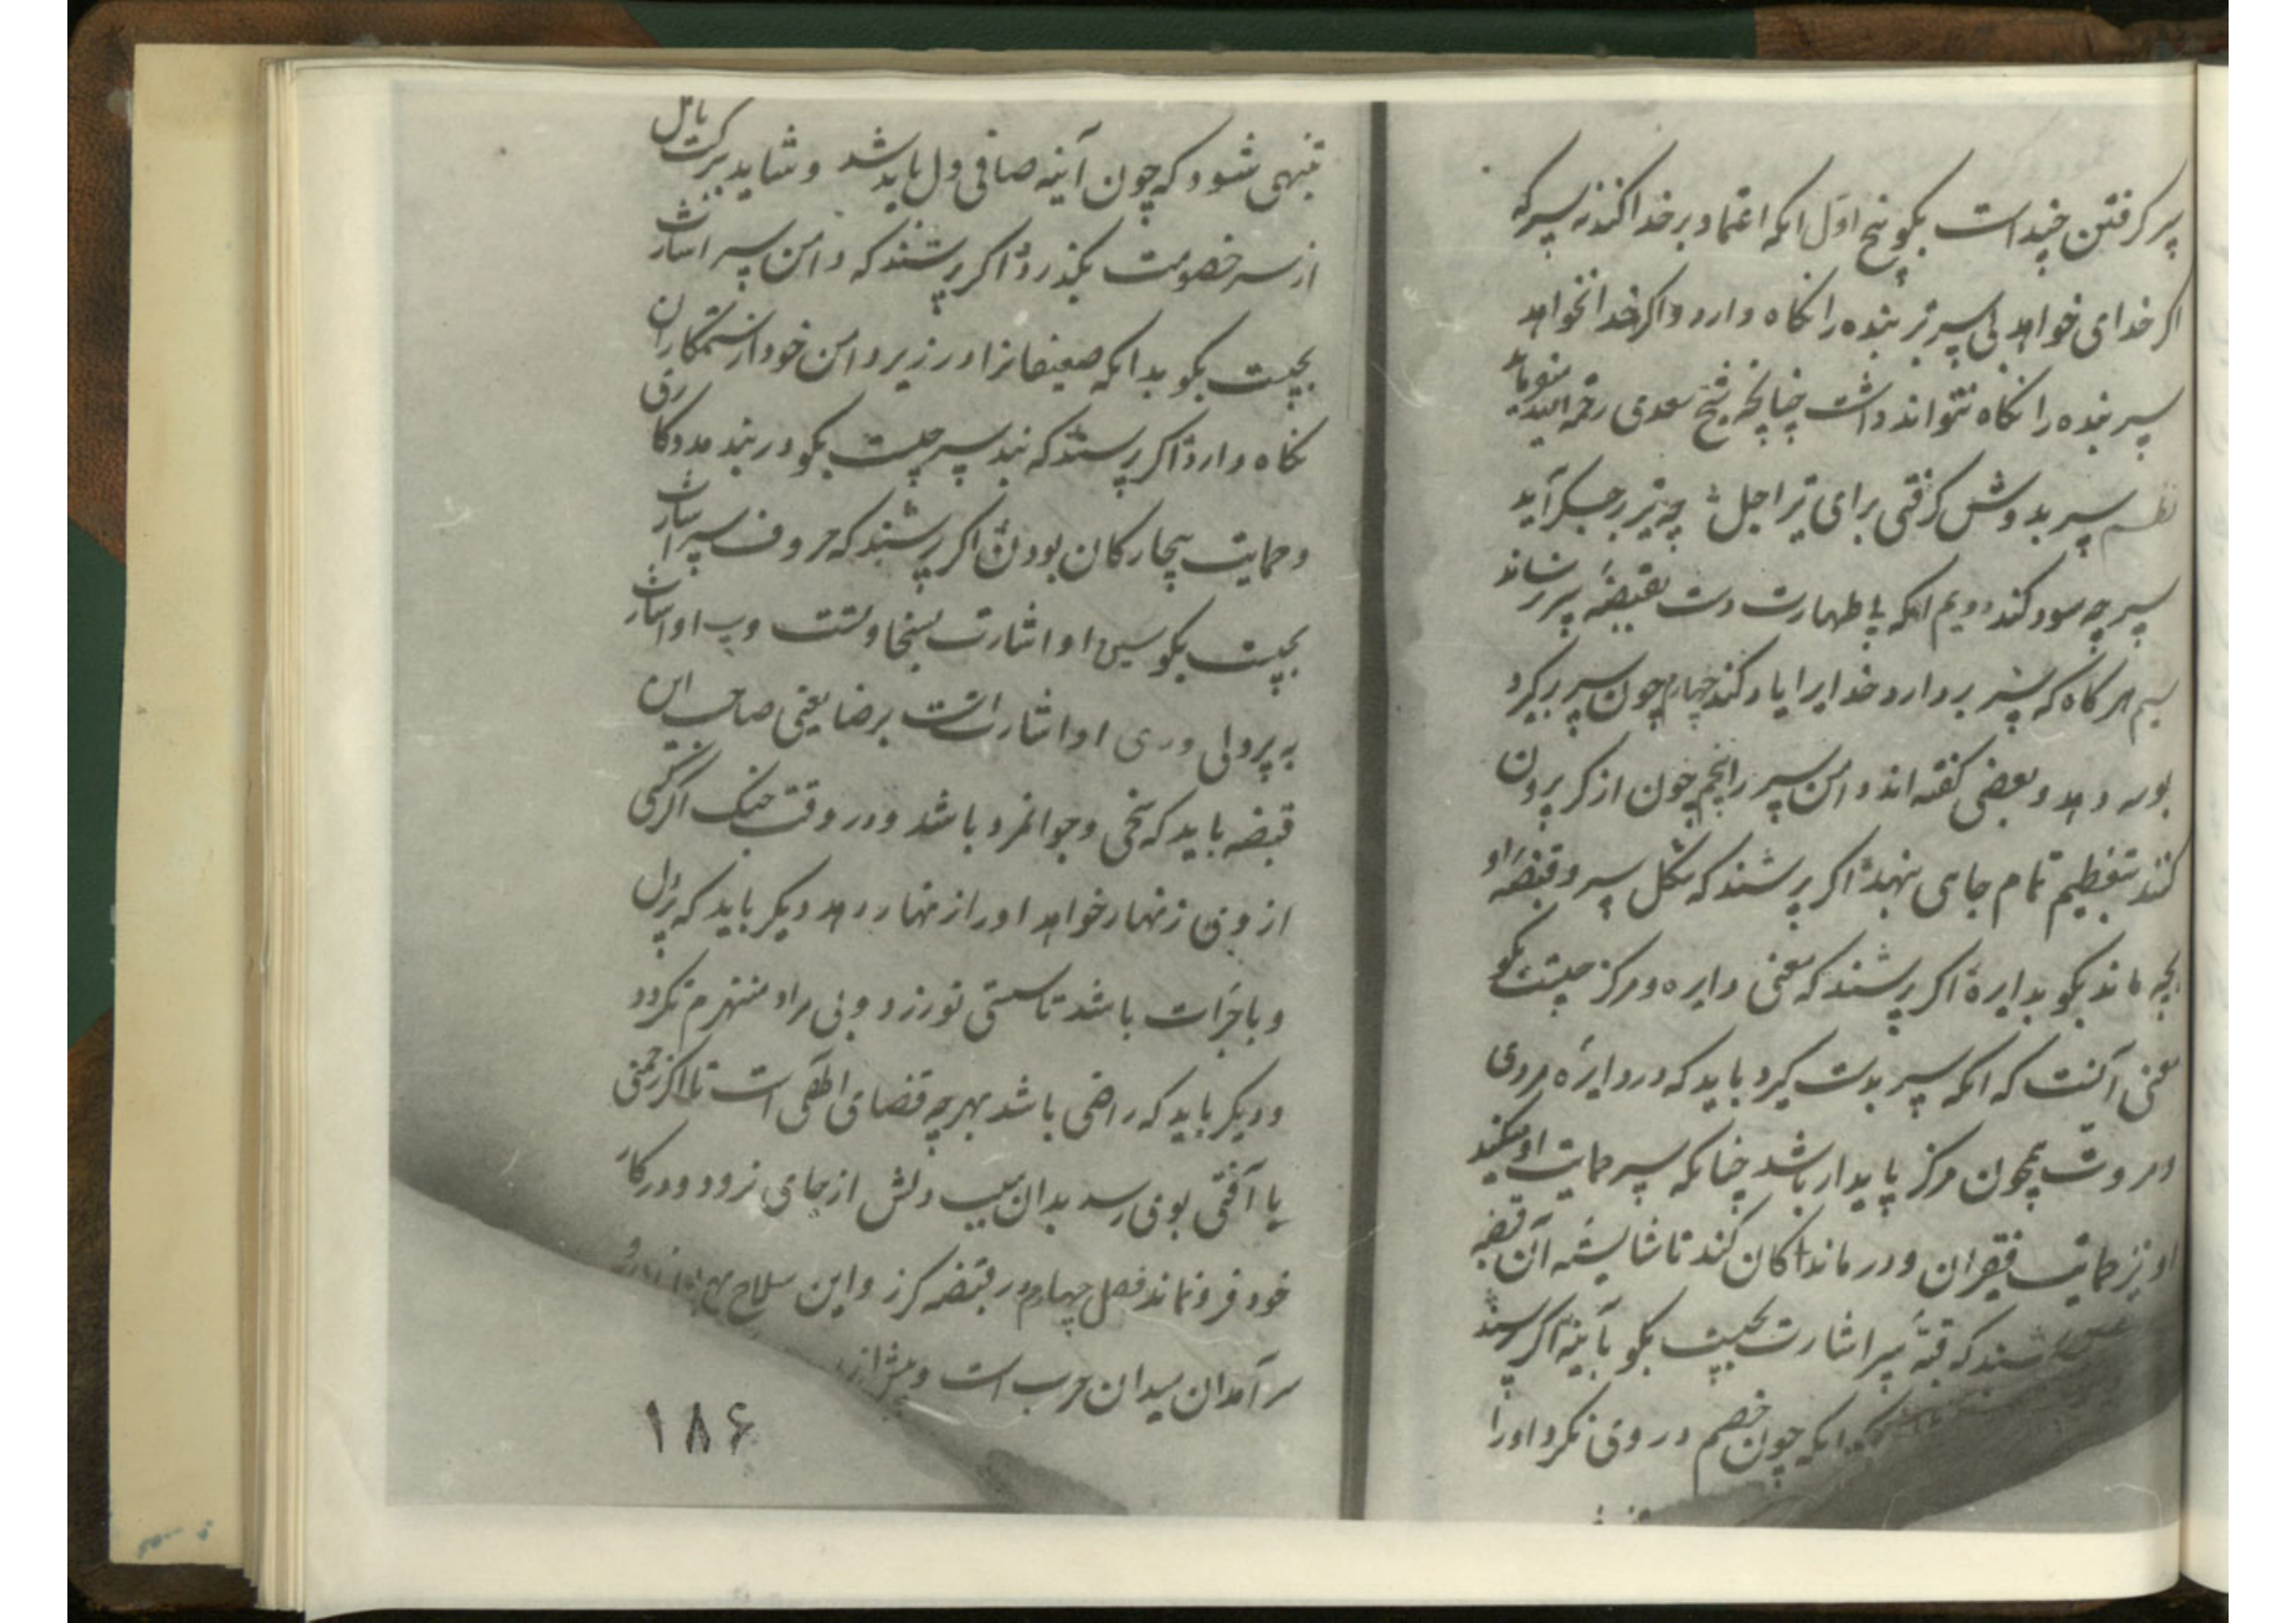 سپر کرفتن چنداست بکو پنج اوّل انکه اعتماد بر خدا کند نه سپر که
اکر خدای خواهد بی سپر نیز بنده را نکاه دارد و اکر خدا نخواهد
سپر بنده را نکاه نتواند داشت چنانچه شیخ سعدی رحمه الله میفرماید
نظم سپر بدوش کرفتی برای تیر اجل چه تیر بر جکر آید
سپر چه سود کند دویم انکه با طهارت دست بقبضه سپر رساند
سیم هرکاه که سپر بردارد خدایرا یاد کند چهارم چون سپر برکیرد
بوسه دهد و بعضی کفته اند دامن سپر را پنجم چون از کمر بیرون
کند بتعظیم تمام جای نهد اکر پرسند که شکل سپر و قبضه او
بچه ماند بکو بدایره اکر پرسند که معنی دایره و مرکز چیست بکو
معنی آنست که انکه سپر بدست کیرد باید که در دایره مردی
و مروت همچون مرکز پایدار باشد چنانکه سپر حمایت او میکند
او نیز حمایت فقیران و درماندکان کند تا شایسته آن قبضه
پرسند که قبّه سپر اشارت بچیست بکو بآینه اکر پرسند
انکه چون خصم در وی نکرد او را
تنبهی شود که چون آینه صافی دل باید شد و شاید ببرکت یا دل
از سر خصومت بکذرد اکر پرسند که دامن سپر اشارت
بچیست بکو بدانکه ضعیفانرا در زیر دامن خود از ستمکاران
نکاه دارد اکر پرسند که بند سپر چیست بکو در بند مددکاری
و حمایت بیچارکان بودن اکر پرسند که حروف سپر اشارت
بچیست بکو سین او اشارت بسخاوتست و پ او اشارت
به پردلی و ری او اشارتست برضا یعنی صاحب این
قبضه باید که سخی و جوانمرد باشد و در وقت جنک اکر کسی
از وی زنهار خواهد او را زنهار دهد دیکر باید که پردل
و با جرات باشد تا سستی نورزد و بی مراد منهزم نکردد
و دیکر باید که راضی باشد بهرچه قضای الهی است تا اکر زحمتی
یا آفتی بوی رسد بدان سبب دلش از جای نرود و در کار
خود فرو نماند فصل چهارم در قبضه کرز و این سلاح
سرآمدان میدان حرب است و پیش از
۱۸۶